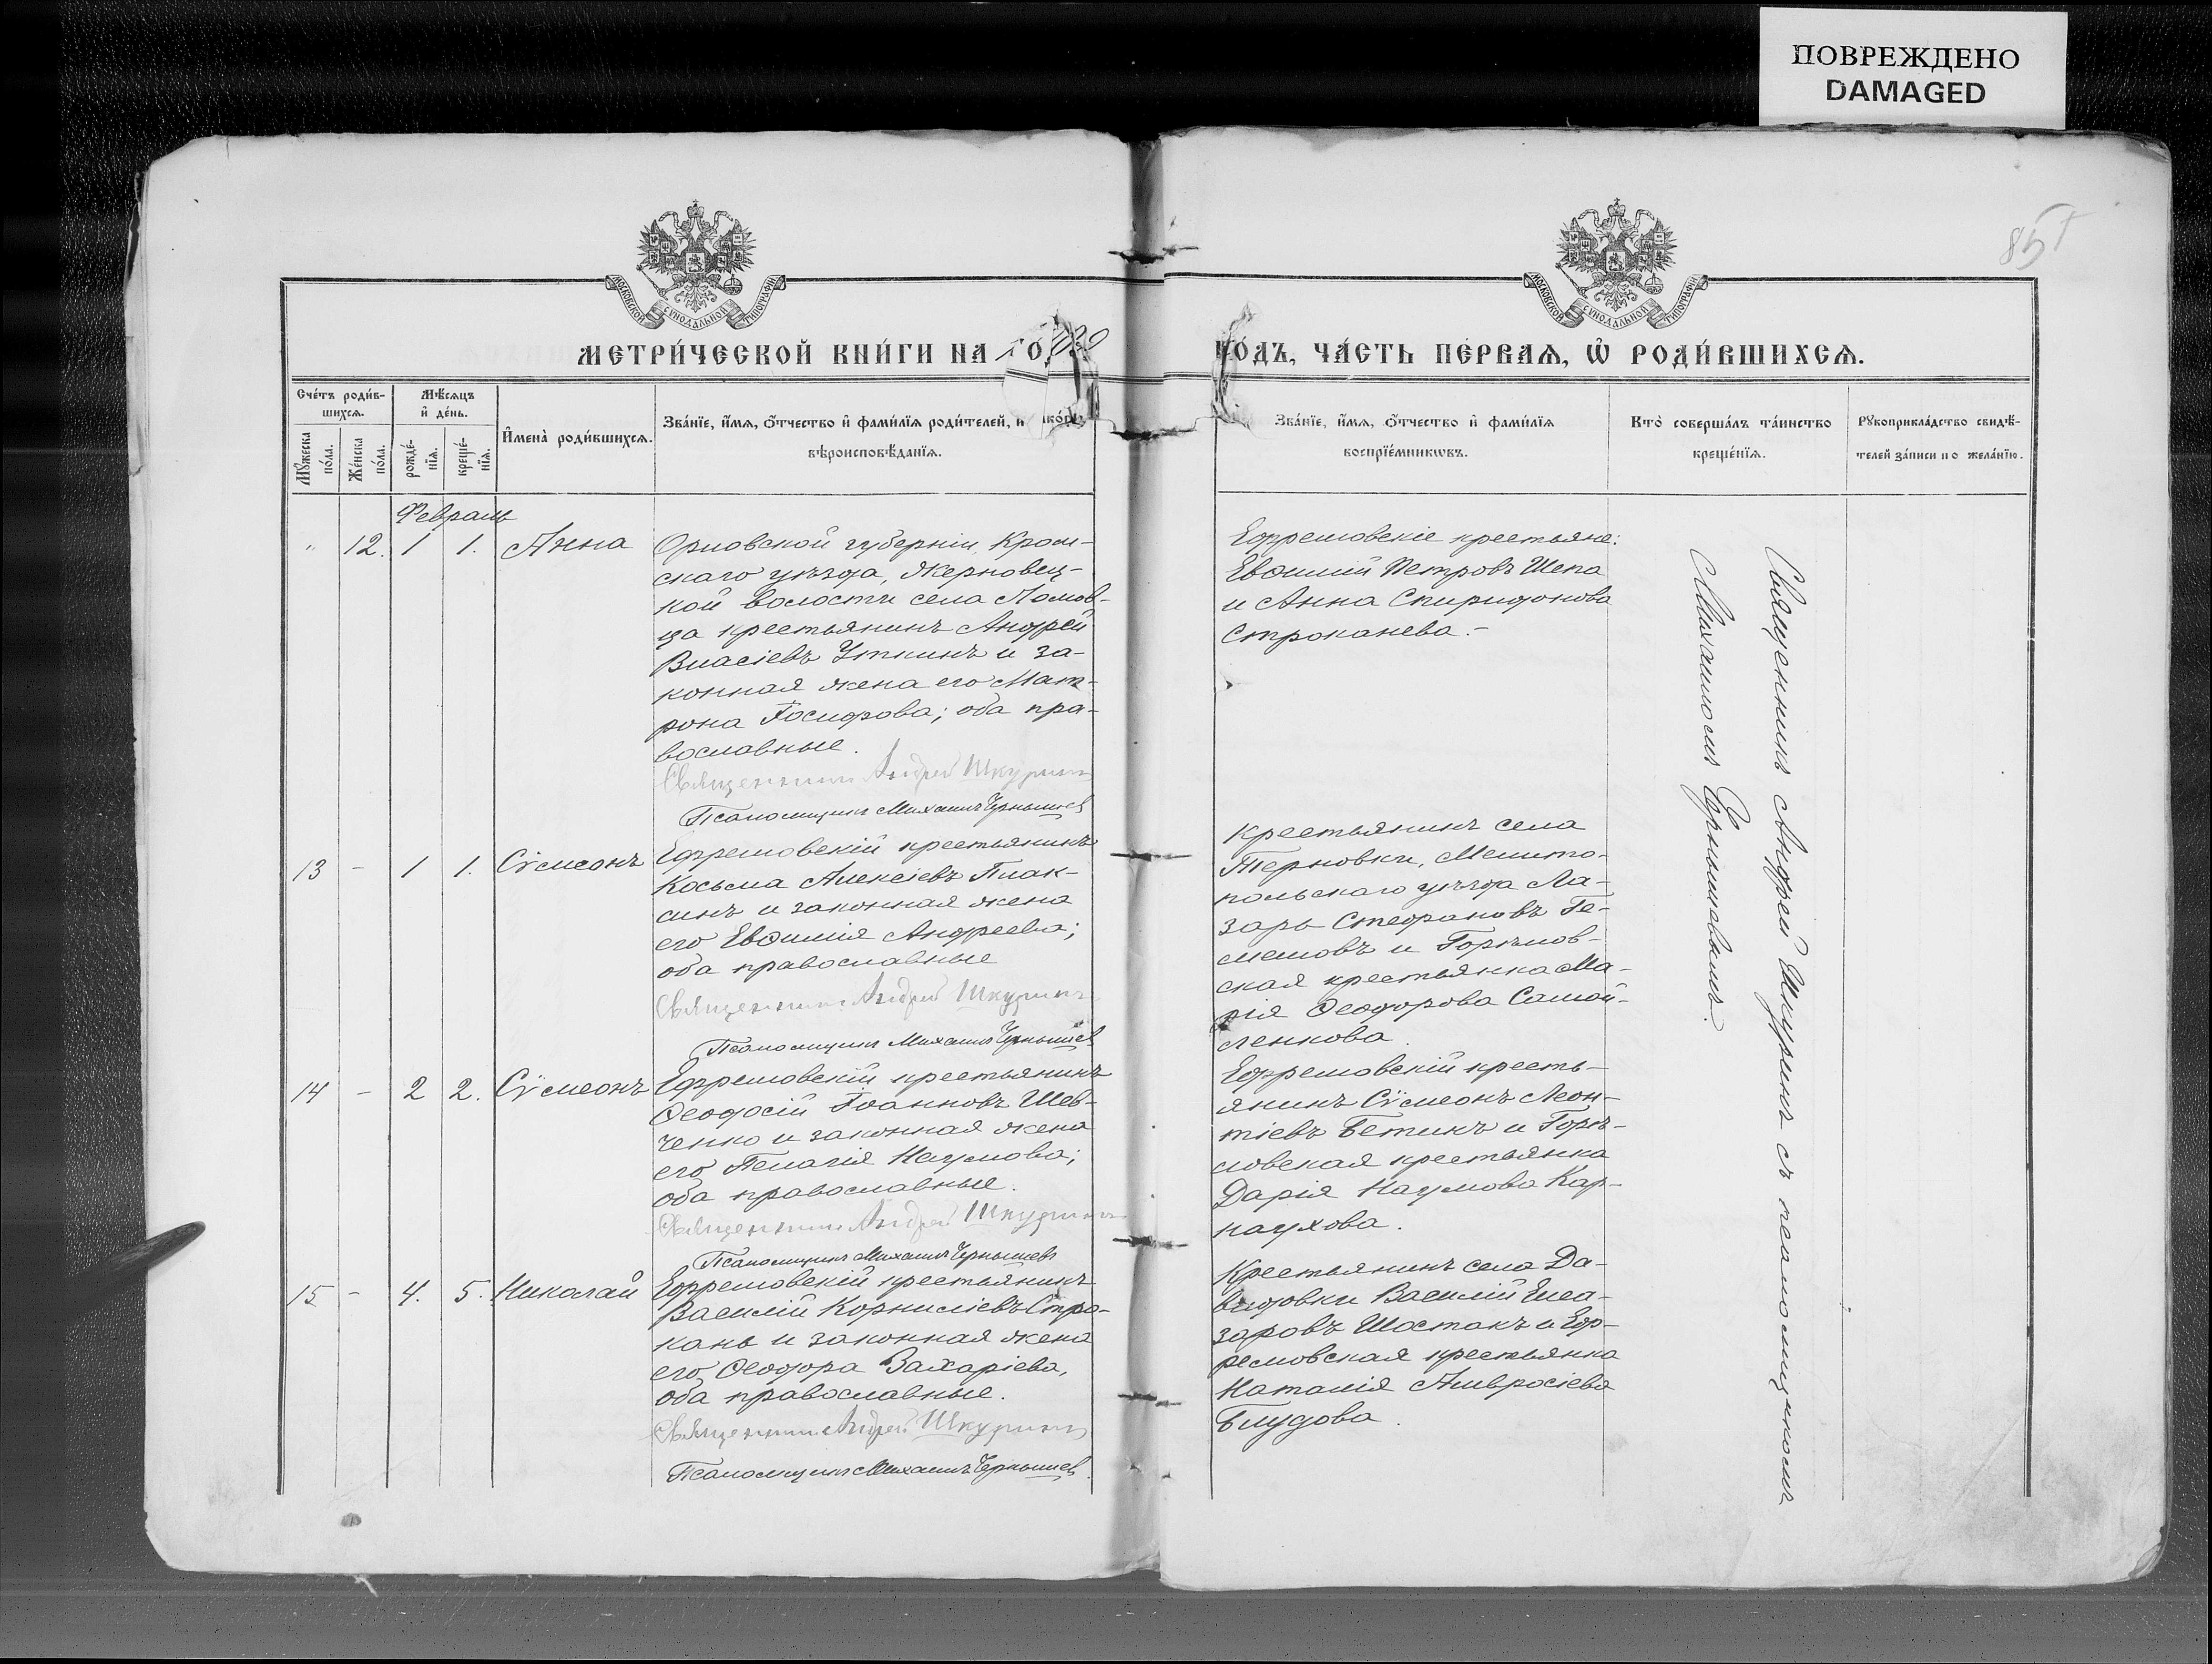 ПОВРЕЖДЕНО
DAMAGED
МОСКОВСКОЙ СѴНОДАЛЬНОЙ ТИПОГРАФІИ
МОСКОВСКОЙ СѴНОДАЛЬНОЙ ТИПОГРАФІИ
МЕТРИ́ЧЕСКОЙ КНИ́ГИ НА
ГО́ДЪ, ЧА́СТЬ ПЕ́РВАѦ, Ѡ҆ РОДИ́ВШИХСѦ.
Сче́тъ роди́в-
шихсѧ.
Мꙋ́жеска по́ла.
Же́нска по́ла.
Мѣ́сѧцъ
и҆ де́нь.
рожде́-
нїѧ.
креще́-
нїѧ.
И҆мена̀ роди́вшихсѧ.
Зва́нїе, и҆́мѧ, ѻ҆́тчество и҆ фами́лїѧ роди́телей, и
вѣроисповѣ́данїѧ.
Зва́нїе, и҆́мѧ, ѻ҆́тчество и҆ фами́лїѧ
воспрїе́мникѡвъ.
Кто̀ соверша́лъ та́инство
креще́нїѧ.
Рꙋкоприкла́дство свидѣ́-
телей за́писи по жела́нїю.
Февраль
" 12. 1 1. Анна
Орловской губерніи, Кром-
скаго уѣзда, Жерновец-
кой волости села Ломов-
ца крестьянинъ Андрей
Власіевъ Уткинъ и за-
конная жена его Мат-
рона Іосифова; оба пра-
вославные.
Священникъ Андрей Шкуринъ
Псаломщикъ Михаилъ Чернышев
Ефремовскіе крестьяне:
Евѳимій Петровъ Шепа
и Анна Спиридонова
Строканева.-
13 - 1 1. Сѵмеонъ
Ефремовскій крестьянинъ
Косьма Алексіевъ Плак-
синъ и законная жена
его Евѳимія Андреева;
оба православные
Священникъ Андрей Шкуринъ
Псаломщикъ Михаилъ Чернышев
Крестьянинъ села
Терновки, Мелито-
польскаго уѣзда Ла-
зарь Стефановъ Ге-
мешовъ и Горѣлов-
ская крестьянка Ма-
рія Ѳеодорова Самой-
ленкова.
14 - 2 2. Сѵмеонъ
Ефремовскій крестьянинъ
Ѳеодосій Іоанновъ Шев-
ченко и законная жена
его Пелагія Наумова;
оба православные.
Священникъ Андрей Шкуринъ
Псаломщикъ Михаилъ Чернышевъ
Ефремовскій кресть-
янинъ Сѵмеонъ Леон-
тіевъ Бетинъ и Горѣ-
ловская крестьянка
Дарія Наумова Кар-
наухова.
15 - 4. 5. Николай
Ефремовскій крестьянинъ
Василій Корниліевъ Стро-
кань и законная жена
его Ѳеодора Захаріева,
оба православные.
Священникъ Андрей Шкуринъ
Псаломщикъ Михаилъ Чернышев
Крестьянинъ села Да-
выдовки Василій Елеа-
заровъ Шостакъ и Еф-
ремовская крестьянка
Наталія Амвросіева
Блудова.
Священникъ Андрей Шкуринъ съ псаломщикомъ
Михаиломъ Чернышевымъ.